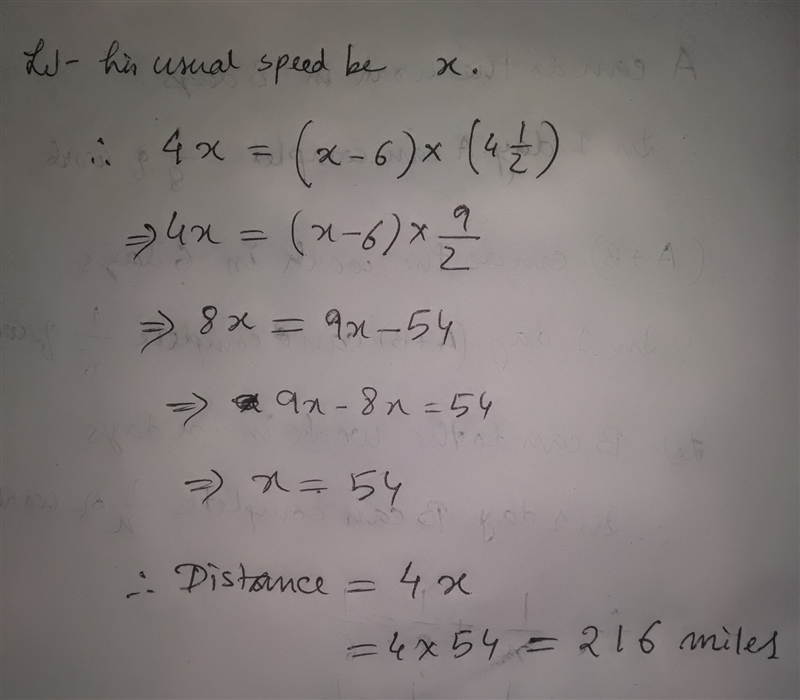 Let his usual speed be x.
∴ 4x = (x-6) × (4 1/2)
⇒ 4x = (x-6) × 9/2
⇒ 8x = 9x - 54
⇒ 9x - 8x = 54
⇒ x = 54
∴ Distance = 4x
= 4 × 54 = 216 miles